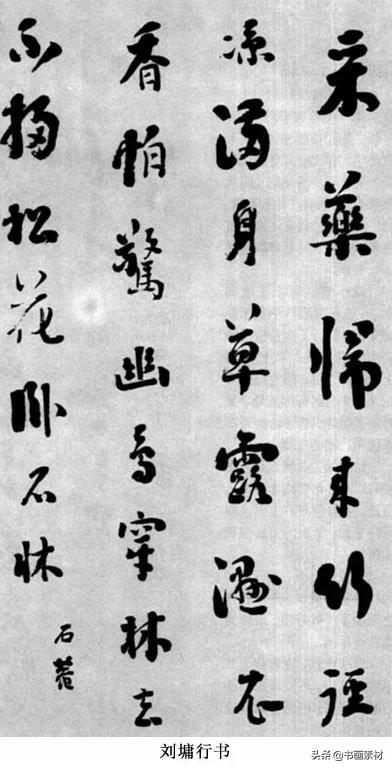 采藥歸来竹徑
涼滿身草露濕衣
香怕驚幽鳥穿林去
不掃松花卧石牀
石菴
刘墉行书
头条 @书画素材